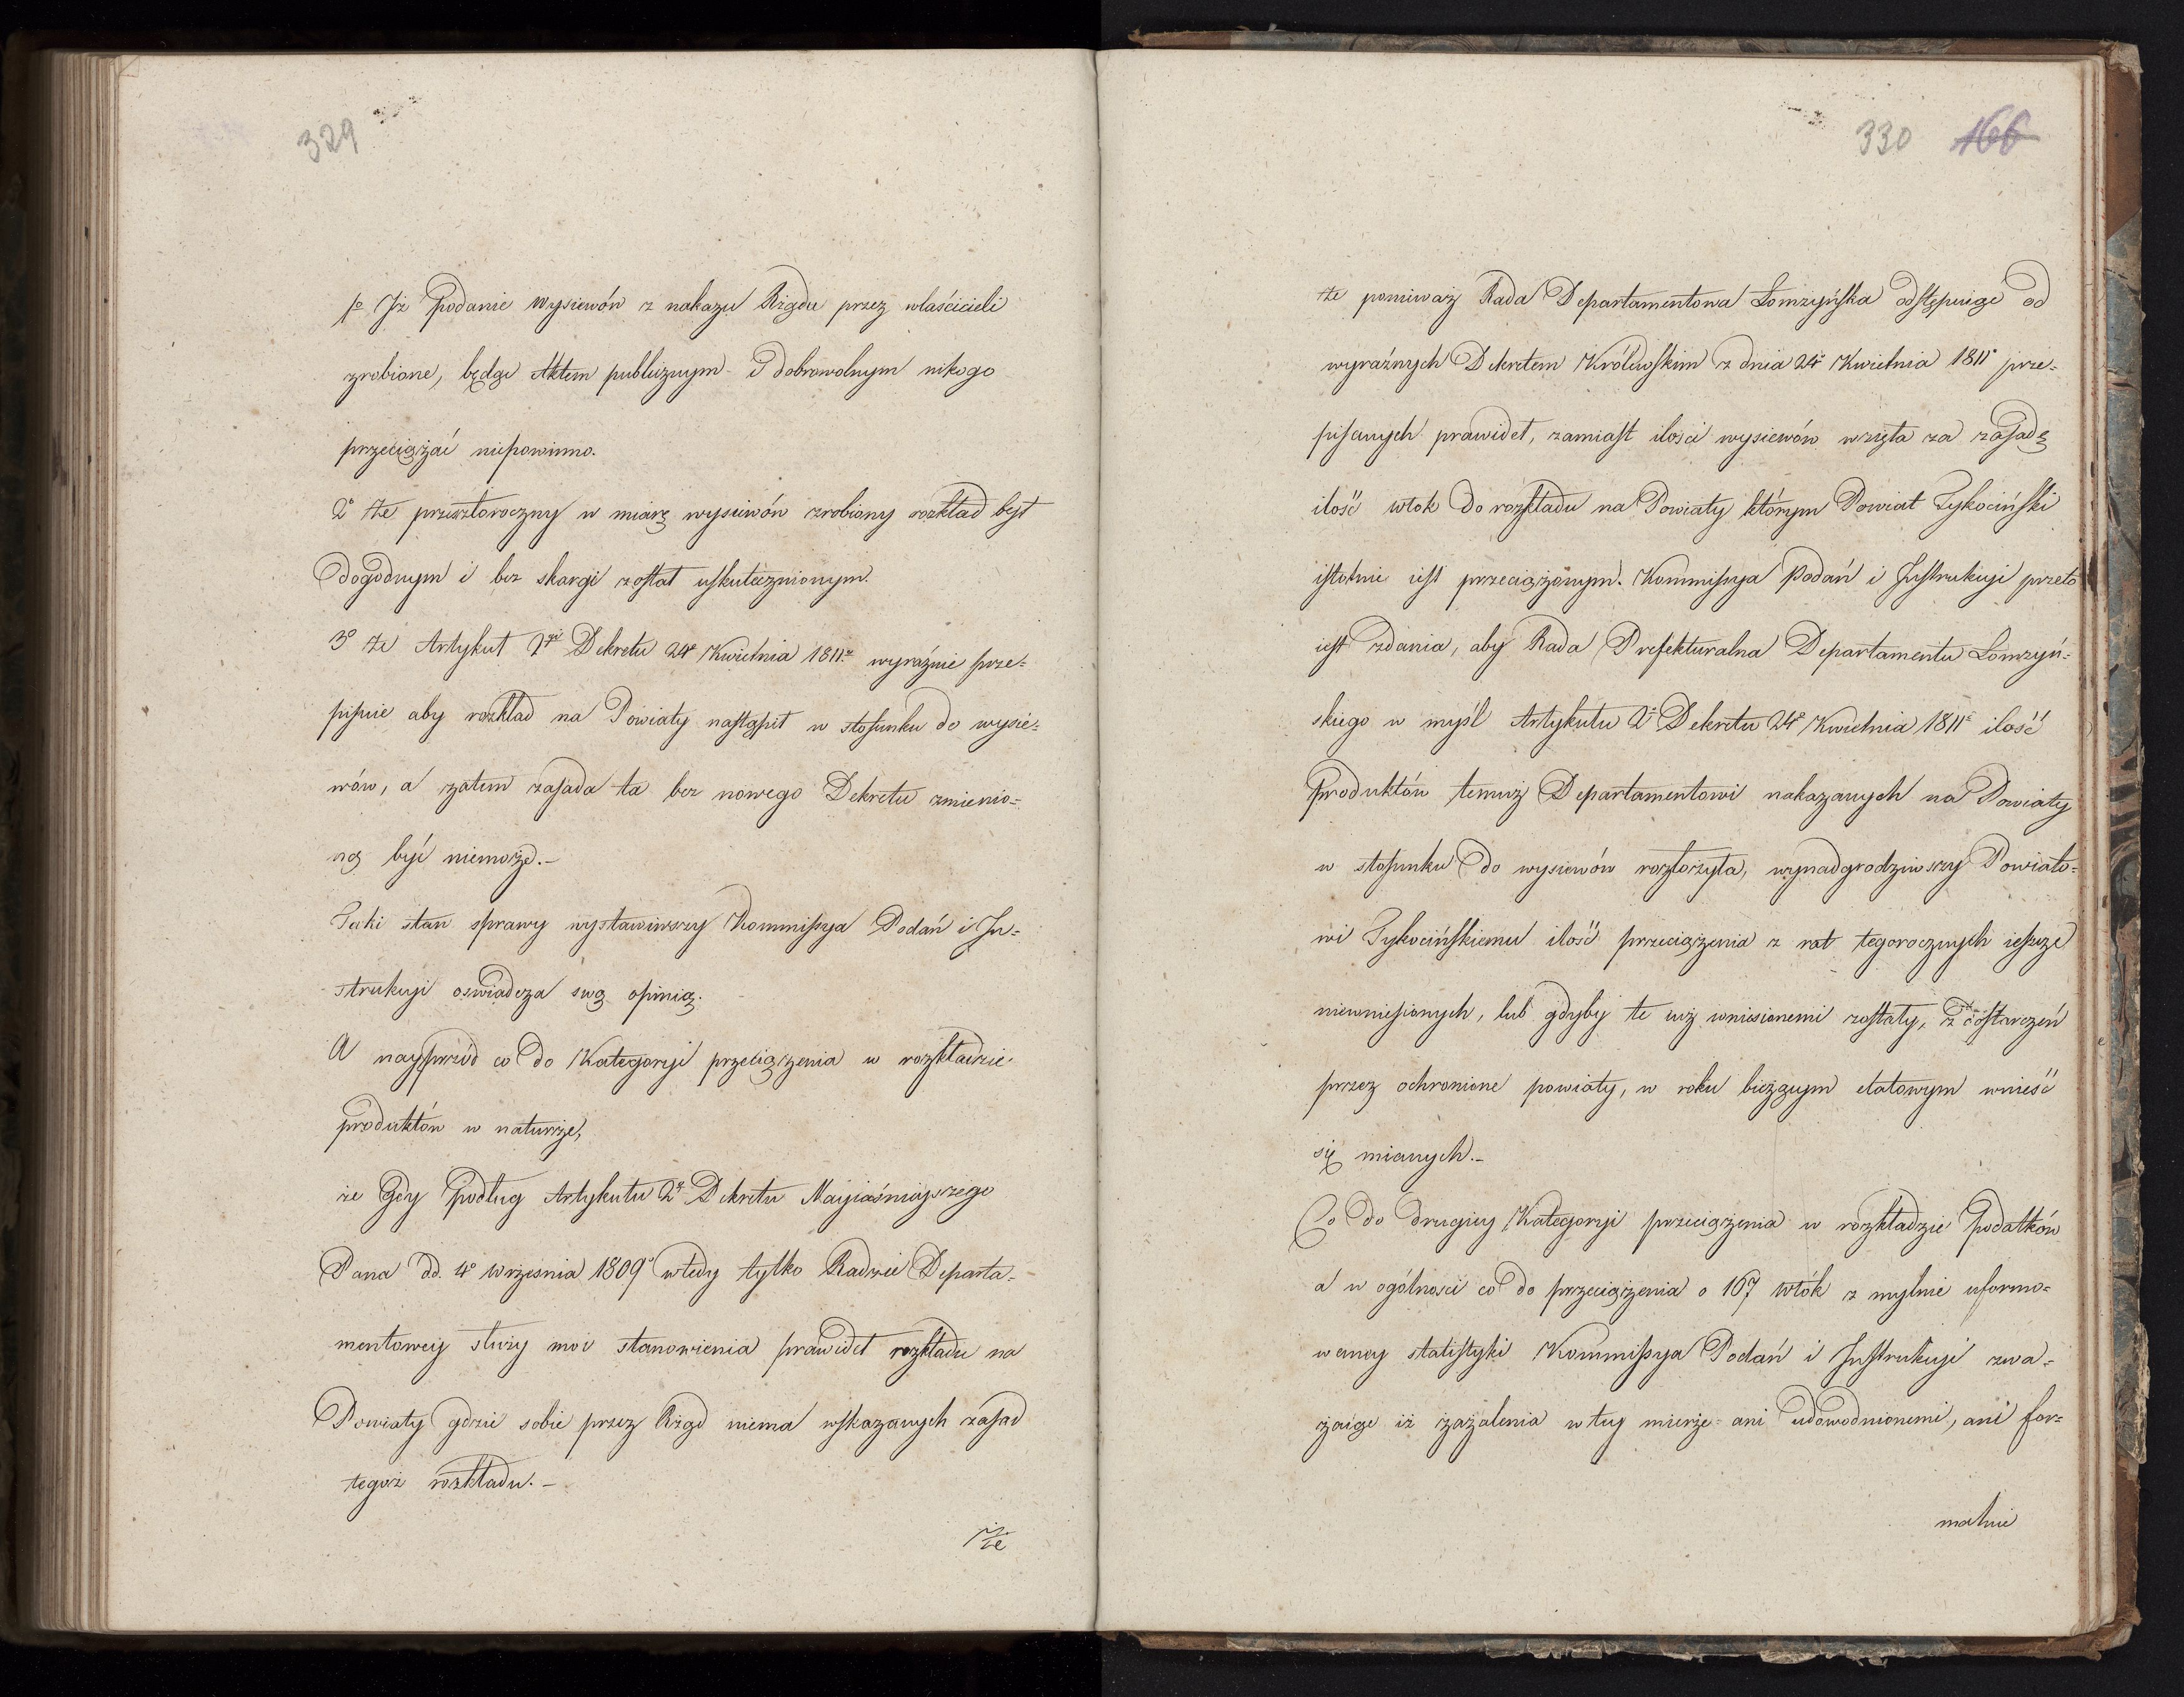 329
1º Iż Podanie wysiewów z nakazu Rządu przez właścicieli
zrobione, będąc Aktem publicznym i dobrowolnym nikogo
przeciążać niepowinno.
2º że przeszłoroczny w miarę wysiewów zrobiony rozkład był
dogodnym i bez skargi został uskutecznionym.
3º że Artykuł 2gi Dekretu 24º Kwietnia 1811º wyraźnie prze-
pisuie aby rozkład na Powiaty nastąpił w stosunku do wysie-
wów, a zatem zasada ta bez nowego Dekretu zmienio-
ną być niemoże.-
Taki stan sprawy wystawiwszy Kommissya Podań i In-
strukcyi oswiadcza swą opinią.
A nayprzód co do Kategoryi przeciążenia w rozkładzie
produktów w naturze,
że Gdy podług Artykułu 2º Dekretu Nayiaśnieyszego
Pana dd. 4º Września 1809º wtedy tylko Radzie Departa-
mentowey służy moc stanowienia prawideł rozkładu na
Powiaty gdzie sobie przez Rząd niema wskazanych zasad
tegoż rozkładu.-
że
330 166
że ponieważ Rada Departamentowa Łomżyńska odstępuiąc od
wyraźnych Dekretem Królewskim z dnia 24º Kwietnia 1811º prze-
pisanych prawideł, zamiast ilości wysiewów wzięła za zasadę
ilość włok do rozkładu na Powiaty którym Powiat Tykociński
istotnie iest przeciążonym. Kommissya Podań i Instrukcyi przeto
iest zdania, aby Rada Prefekturalna Departamentu Łomżyń-
skiego w myśl Artykułu 2º Dekretu 24º Kwietnia 1811º ilość
Produktów temuż Departamentowi nakazanych na Powiaty
w stosunku do wysiewów rozłożyła, wynadgrodziwszy Powiato-
wi Tykocińskiemu ilość przeciążenia z rat tegorocznych ieszcze
niewniesionych, lub gdyby te iuż wniesionemi zostały, z dostarczeń
przez ochronione powiaty, w roku bieżącym etatowym wnieść
się mianych.-
Co do drugiey Kategoryi przeciążenia w rozkładzie Podatków
a w ogólności co do przeciążenia o 167 włók z mylnie uformo-
waney statistyki Kommissya Podań i Instrukcyi zwa-
żaiąc iż zażalenia w tey mierze ani udowodnionemi, ani for-
malnie